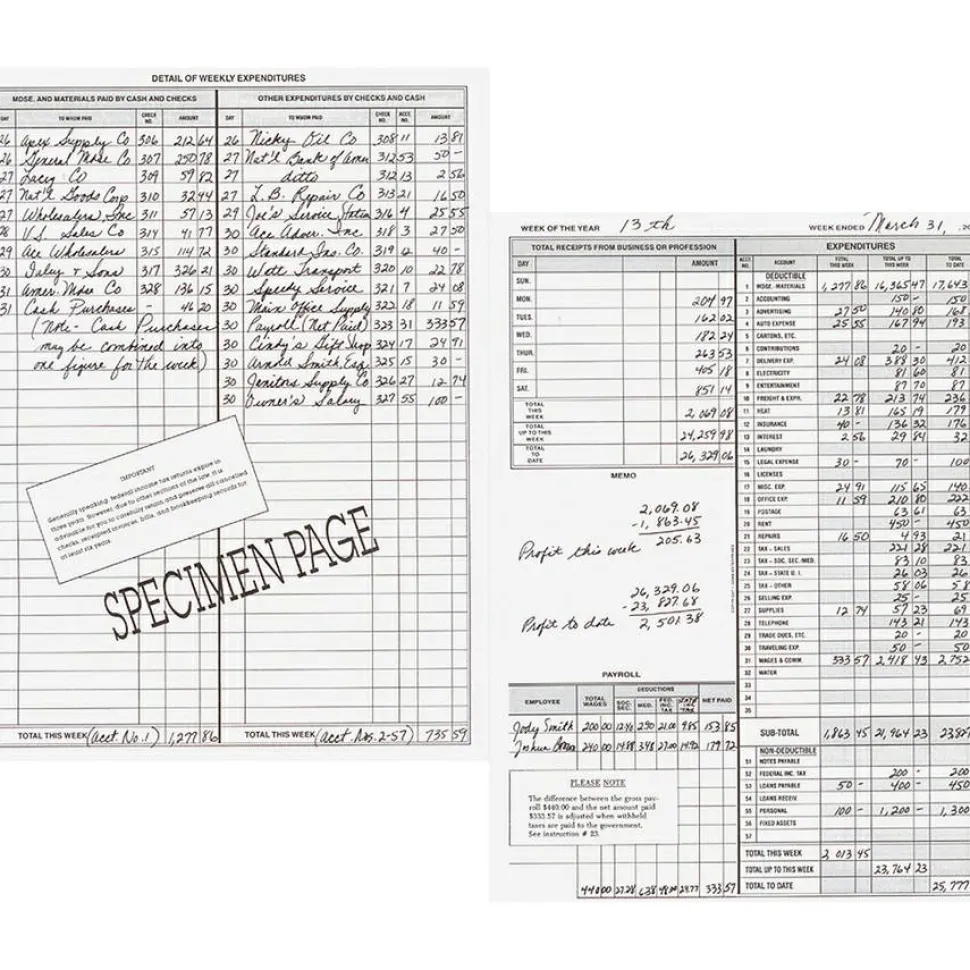 DETAIL OF WEEKLY EXPENDITURES
MDSE. AND MATERIALS PAID BY CASH AND CHECKS
DAY TO WHOM PAID CHECK NO. AMOUNT
26 Apex Supply Co 306 212 64
26 General Mdse Co 307 250 78
27 Lacy Co 309 59 82
27 Nat'l Goods Corp 310 32 44
27 Wholesalers, Inc 311 57 13
28 U.S. Sales Co 314 41 77
29 Ace Wholesalers 315 114 72
30 Daley & Sons 317 326 21
31 Amer. Mdse Co 328 136 15
31 Cash Purchases - 46 20
(Note - Cash Purchases
may be combined into
one figure for the week)
TOTAL THIS WEEK (acct. No. 1) 1,277 86
OTHER EXPENDITURES BY CHECKS AND CASH
DAY TO WHOM PAID CHECK NO. ACC. NO. AMOUNT
26 Nicky Oil Co 308 11 13 81
27 Nat'l Bank of Amer 312 53 50 -
27 ditto 312 13 2 56
27 L.B. Repair Co 313 21 16 50
29 Joe's Service Station 316 4 25 55
30 Ace Adver. Inc 318 3 27 50
30 Standard Ins. Co. 319 12 40 -
30 Wott Transport 320 10 22 78
30 Speedy Service 321 7 24 08
30 Main Office Supply 322 18 11 59
30 Payroll (Net Paid) 323 31 333 57
30 Cindy's Gift Shop 324 17 24 91
30 Arnold Smith, Esq. 325 15 30 -
30 Janitors Supply Co 326 27 12 74
30 Owner's Salary 327 55 100 -
TOTAL THIS WEEK (acct. Nos. 2-57) 735 59
IMPORTANT
Generally speaking, federal income tax returns expire in
three years. However, due to other sections of the law, it is
advisable for you to carefully retain and preserve all cancelled
checks, receipted invoices, bills, and bookkeeping records for
at least six years.
SPECIMEN PAGE
WEEK OF THE YEAR 13th WEEK ENDED March 31, 20
TOTAL RECEIPTS FROM BUSINESS OR PROFESSION
DAY AMOUNT
SUN.
MON. 204 97
TUES. 162 02
WED. 182 24
THUR. 263 53
FRI. 405 18
SAT. 851 14
TOTAL THIS WEEK 2,069 08
TOTAL UP TO THIS WEEK 24,259 98
TOTAL TO DATE 26,329 06
MEMO
2,069.08
-1,863.45
Profit this week 205.63
26,329.06
-23,827.68
Profit to date 2,501.38
PAYROLL
EMPLOYEE TOTAL WAGES DEDUCTIONS SOC. SEC. MED. FED. INC. TAX STATE INC. TAX NET PAID
Jody Smith 200 00 12.40 2.90 21.00 9.85 153 85
Joshua 240 00 14.88 3.48 27.00 14.92 179 72
PLEASE NOTE
The difference between the gross pay-
roll $440.00 and the net amount paid
$333.57 is adjusted when withheld
taxes are paid to the government.
See instruction # 23.
440 00 27.28 6.38 48.00 24.77 333 57
EXPENDITURES
ACCT. NO. ACCOUNT TOTAL THIS WEEK TOTAL UP TO THIS WEEK TOTAL TO DATE
DEDUCTIBLE
1 MDSE.-MATERIALS 1,277 86 16,365 47 17,643
2 ACCOUNTING 150 - 150
3 ADVERTISING 27 50 140 80 168
4 AUTO EXPENSE 25 55 167 94 193
5 CARTONS, ETC.
6 CONTRIBUTIONS 20 - 20
7 DELIVERY EXP. 24 08 388 30 412
8 ELECTRICITY 81 60 81
9 ENTERTAINMENT 87 70 87
10 FREIGHT & EXPR. 22 78 213 74 236
11 HEAT 13 81 165 19 179
12 INSURANCE 40 - 136 32 176
13 INTEREST 2 56 29 84 32
14 LAUNDRY
15 LEGAL EXPENSE 30 - 70 - 100
16 LICENSES
17 MISC. EXP. 24 91 115 65 140
18 OFFICE EXP. 11 59 210 80 222
19 POSTAGE 63 61 63
20 RENT 450 - 450
21 REPAIRS 16 50 4 93 21
22 TAX - SALES 221 28 221
23 TAX - SOC. SEC./MED. 83 10 83
24 TAX - STATE U. I. 26 03 26
25 TAX - OTHER 58 06 58
26 SELLING EXP. 25 - 25
27 SUPPLIES 12 74 57 23 69
28 TELEPHONE 143 21 143
29 TRADE DUES, ETC. 20 - 20
30 TRAVELING EXP. 50 - 50
31 WAGES & COMM. 333 57 2,418 43 2,752
32 WATER
33
34
35
SUB-TOTAL 1,863 45 21,964 23 23,827
NON-DEDUCTIBLE
51 NOTES PAYABLE
52 FEDERAL INC. TAX 200 - 200
53 LOANS PAYABLE 50 - 400 - 450
54 LOANS RECEIV.
55 PERSONAL 100 - 1,200 - 1,300
56 FIXED ASSETS
57
TOTAL THIS WEEK 2,013 45
TOTAL UP TO THIS WEEK 23,764 23
TOTAL TO DATE 25,777